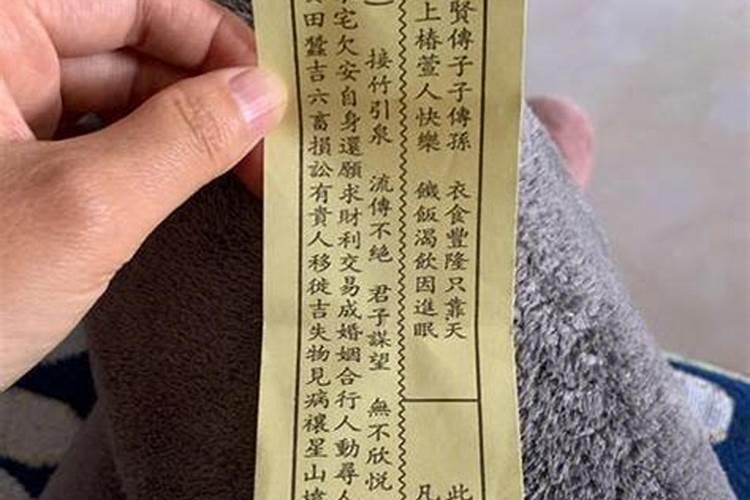 賢傳子子傳孫 衣食豐隆只靠天
上椿萱人快樂 饑飯渴飲因進眠
此
凡
接竹引泉 流傳不絕 君子謀望 無不欣悅
宅欠安自身還願求財利交易成婚姻合行人動尋人
田蠶吉六畜損訟有貴人移徙吉失物見病禳星山墳